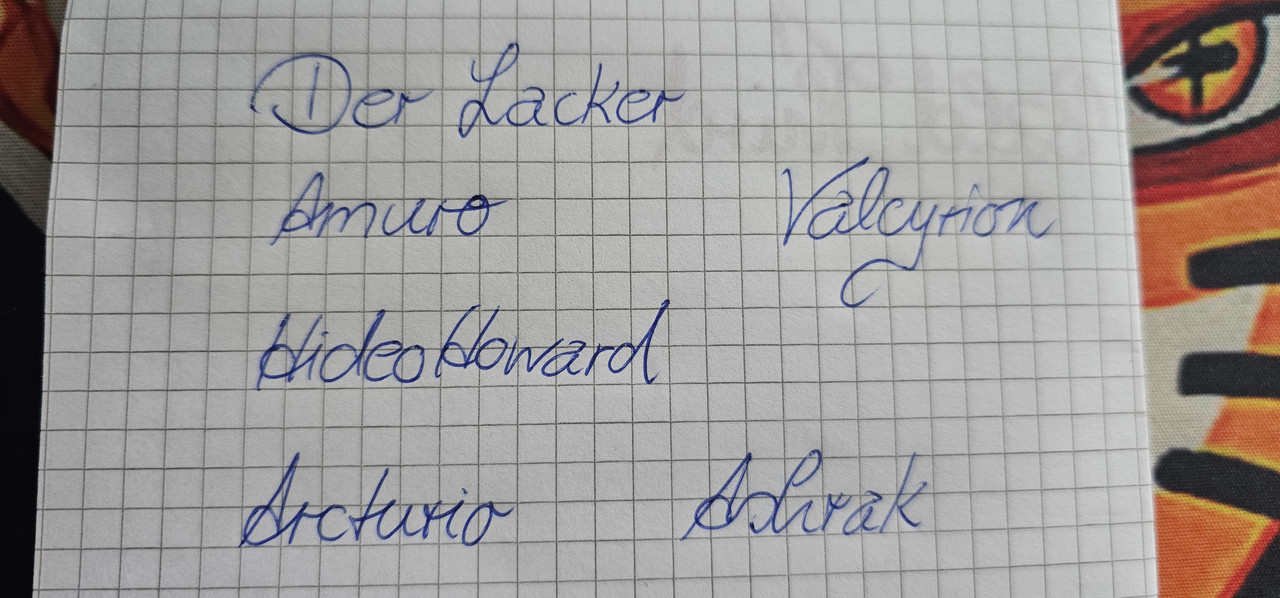 Der Lacker
Amuro Valcyrion
HideoHoward
Arcturio Ashrak